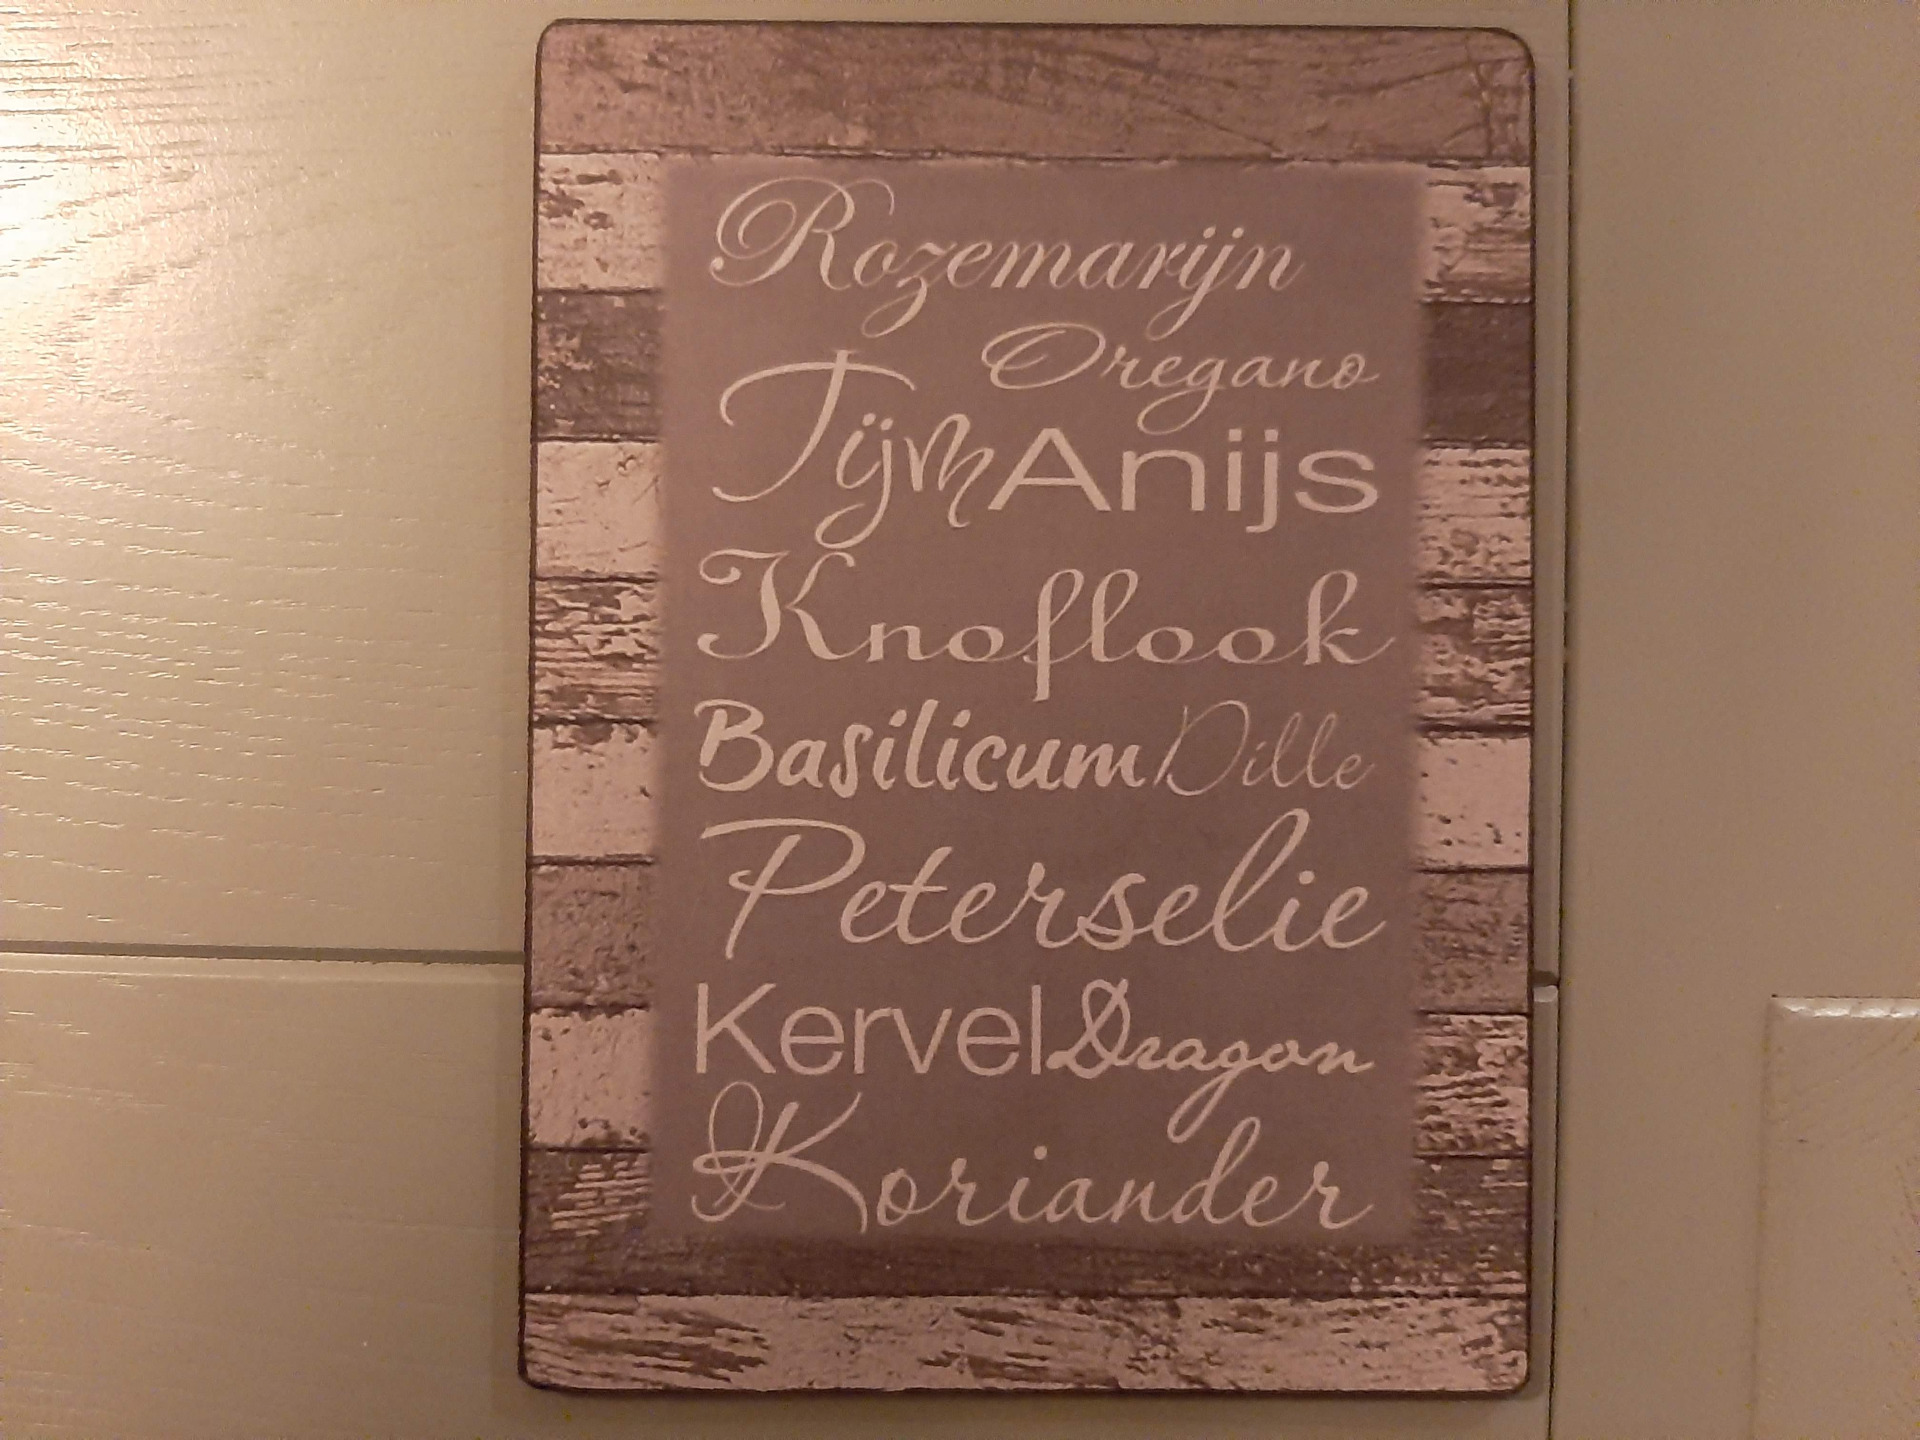 Rozemarijn
Oregano
Tijm Anijs
Knoflook
Basilicum Dille
Peterselie
Kervel Dragon
Koriander